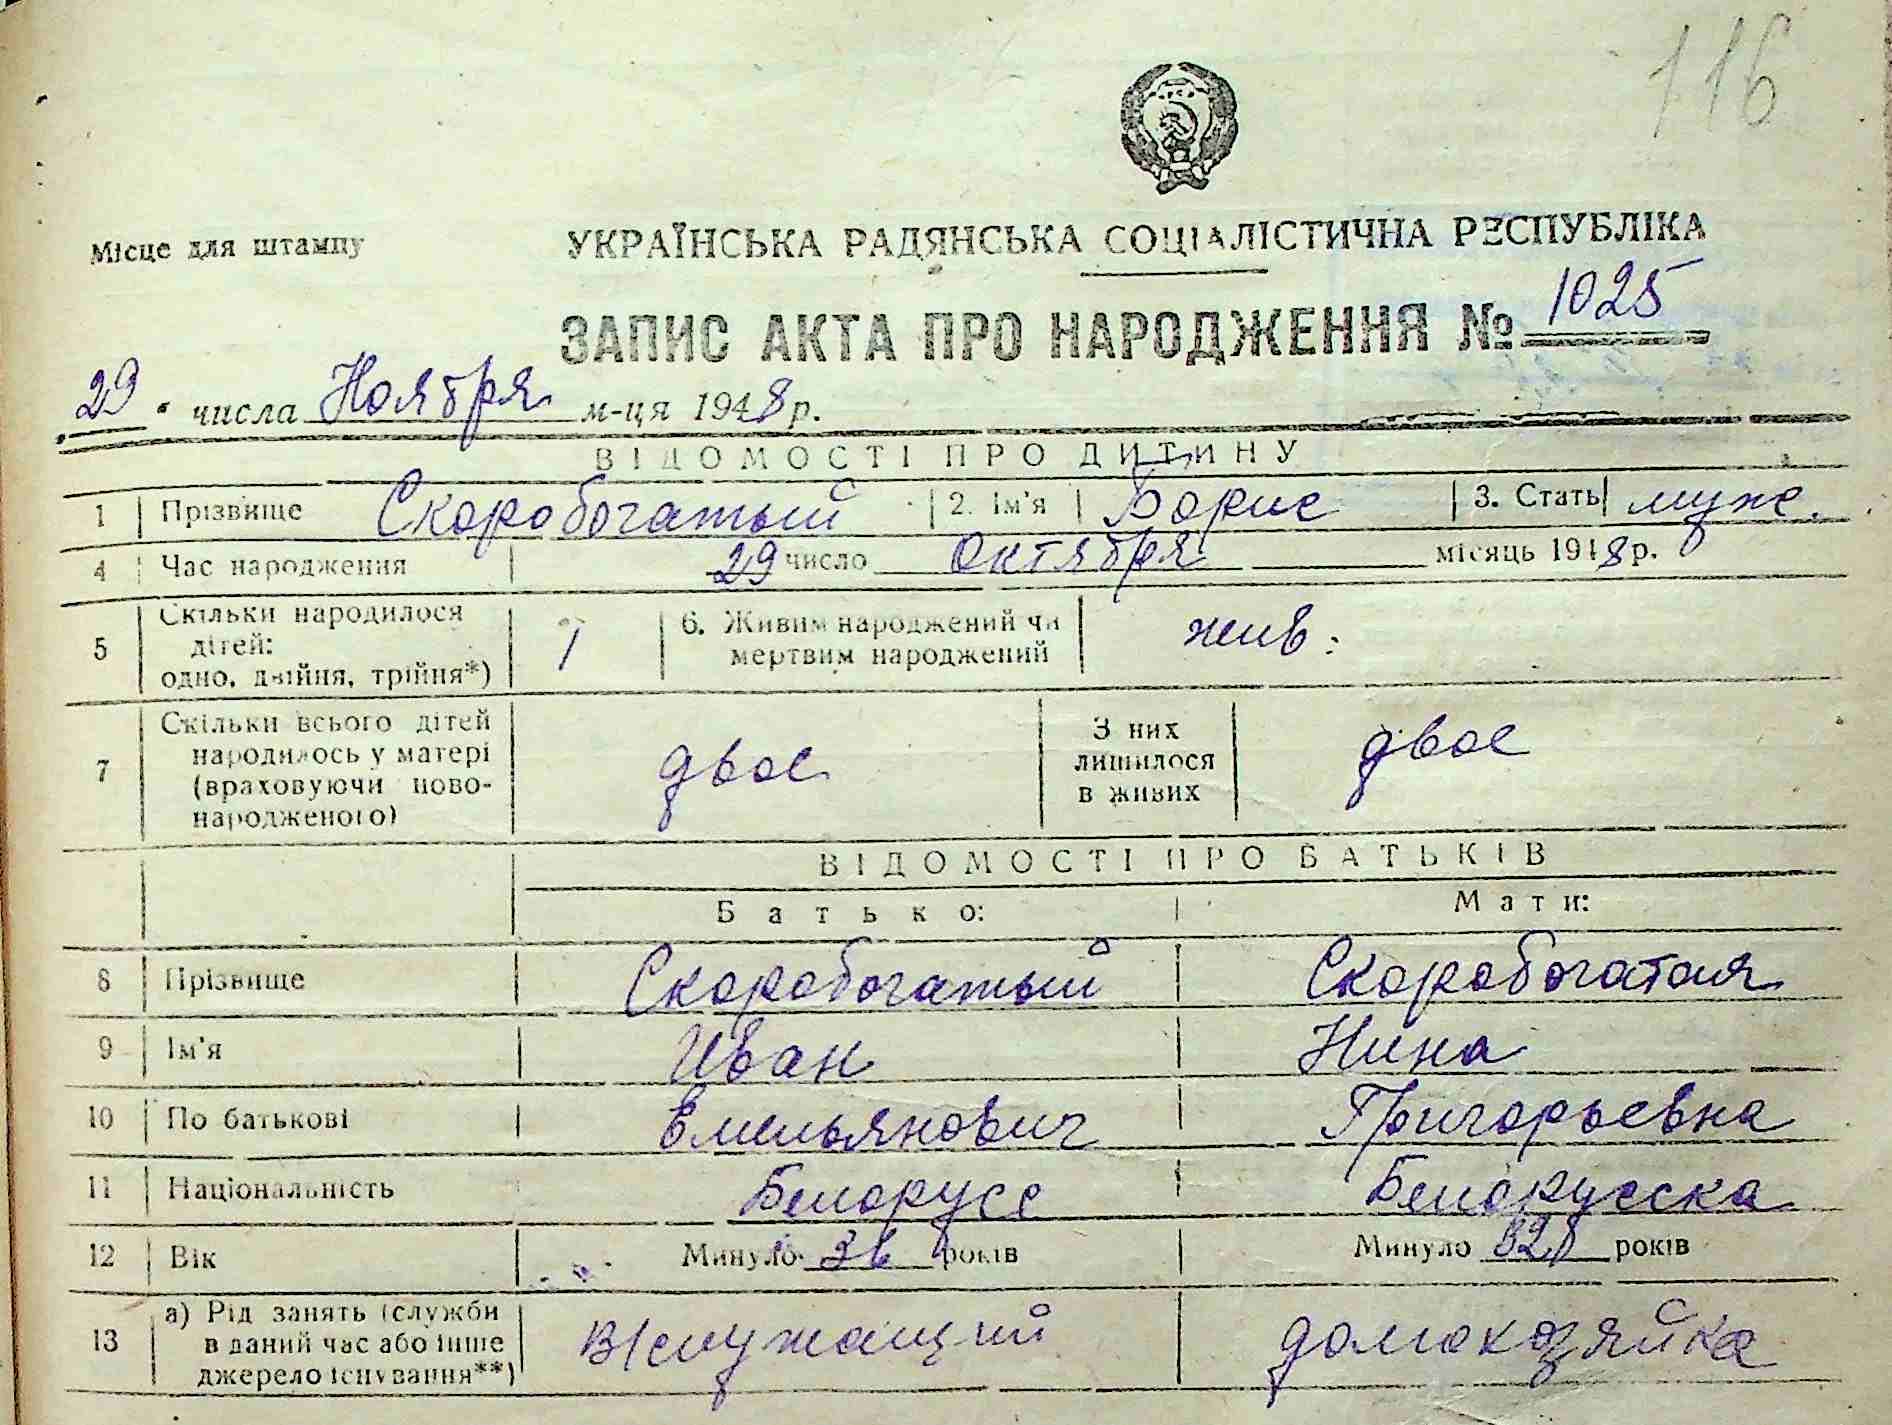 116
Місце для штампу
УКРАЇНСЬКА РАДЯНСЬКА СОЦІАЛІСТИЧНА РЕСПУБЛІКА
ЗАПИС АКТА ПРО НАРОДЖЕННЯ № 1025
29 числа Ноября м-ця 1948 р.
ВІДОМОСТІ ПРО ДИТИНУ
1 Прізвище Скоробогатый 2. Ім'я Борис 3. Стать муж.
4 Час народження 29 число Октября місяць 1948 р.
5 Скільки народилося дітей: одно, двійня, трійня*) 1 6. Живим народжений чи мертвим народжений жив.
7 Скільки всього дітей народилось у матері (враховуючи новонародженого) двое З них лишилося в живих двое
ВІДОМОСТІ ПРО БАТЬКІВ
Батько: Мати:
8 Прізвище Скоробогатый Скоробогатая
9 Ім'я Иван Нина
10 По батькові Емельянович Григорьевна
11 Національність Белорусс Белорусска
12 Вік Минуло 36 років Минуло років
13 а) Рід занять (служби в даний час або інше джерело існування**) В/служащий домохозяйка